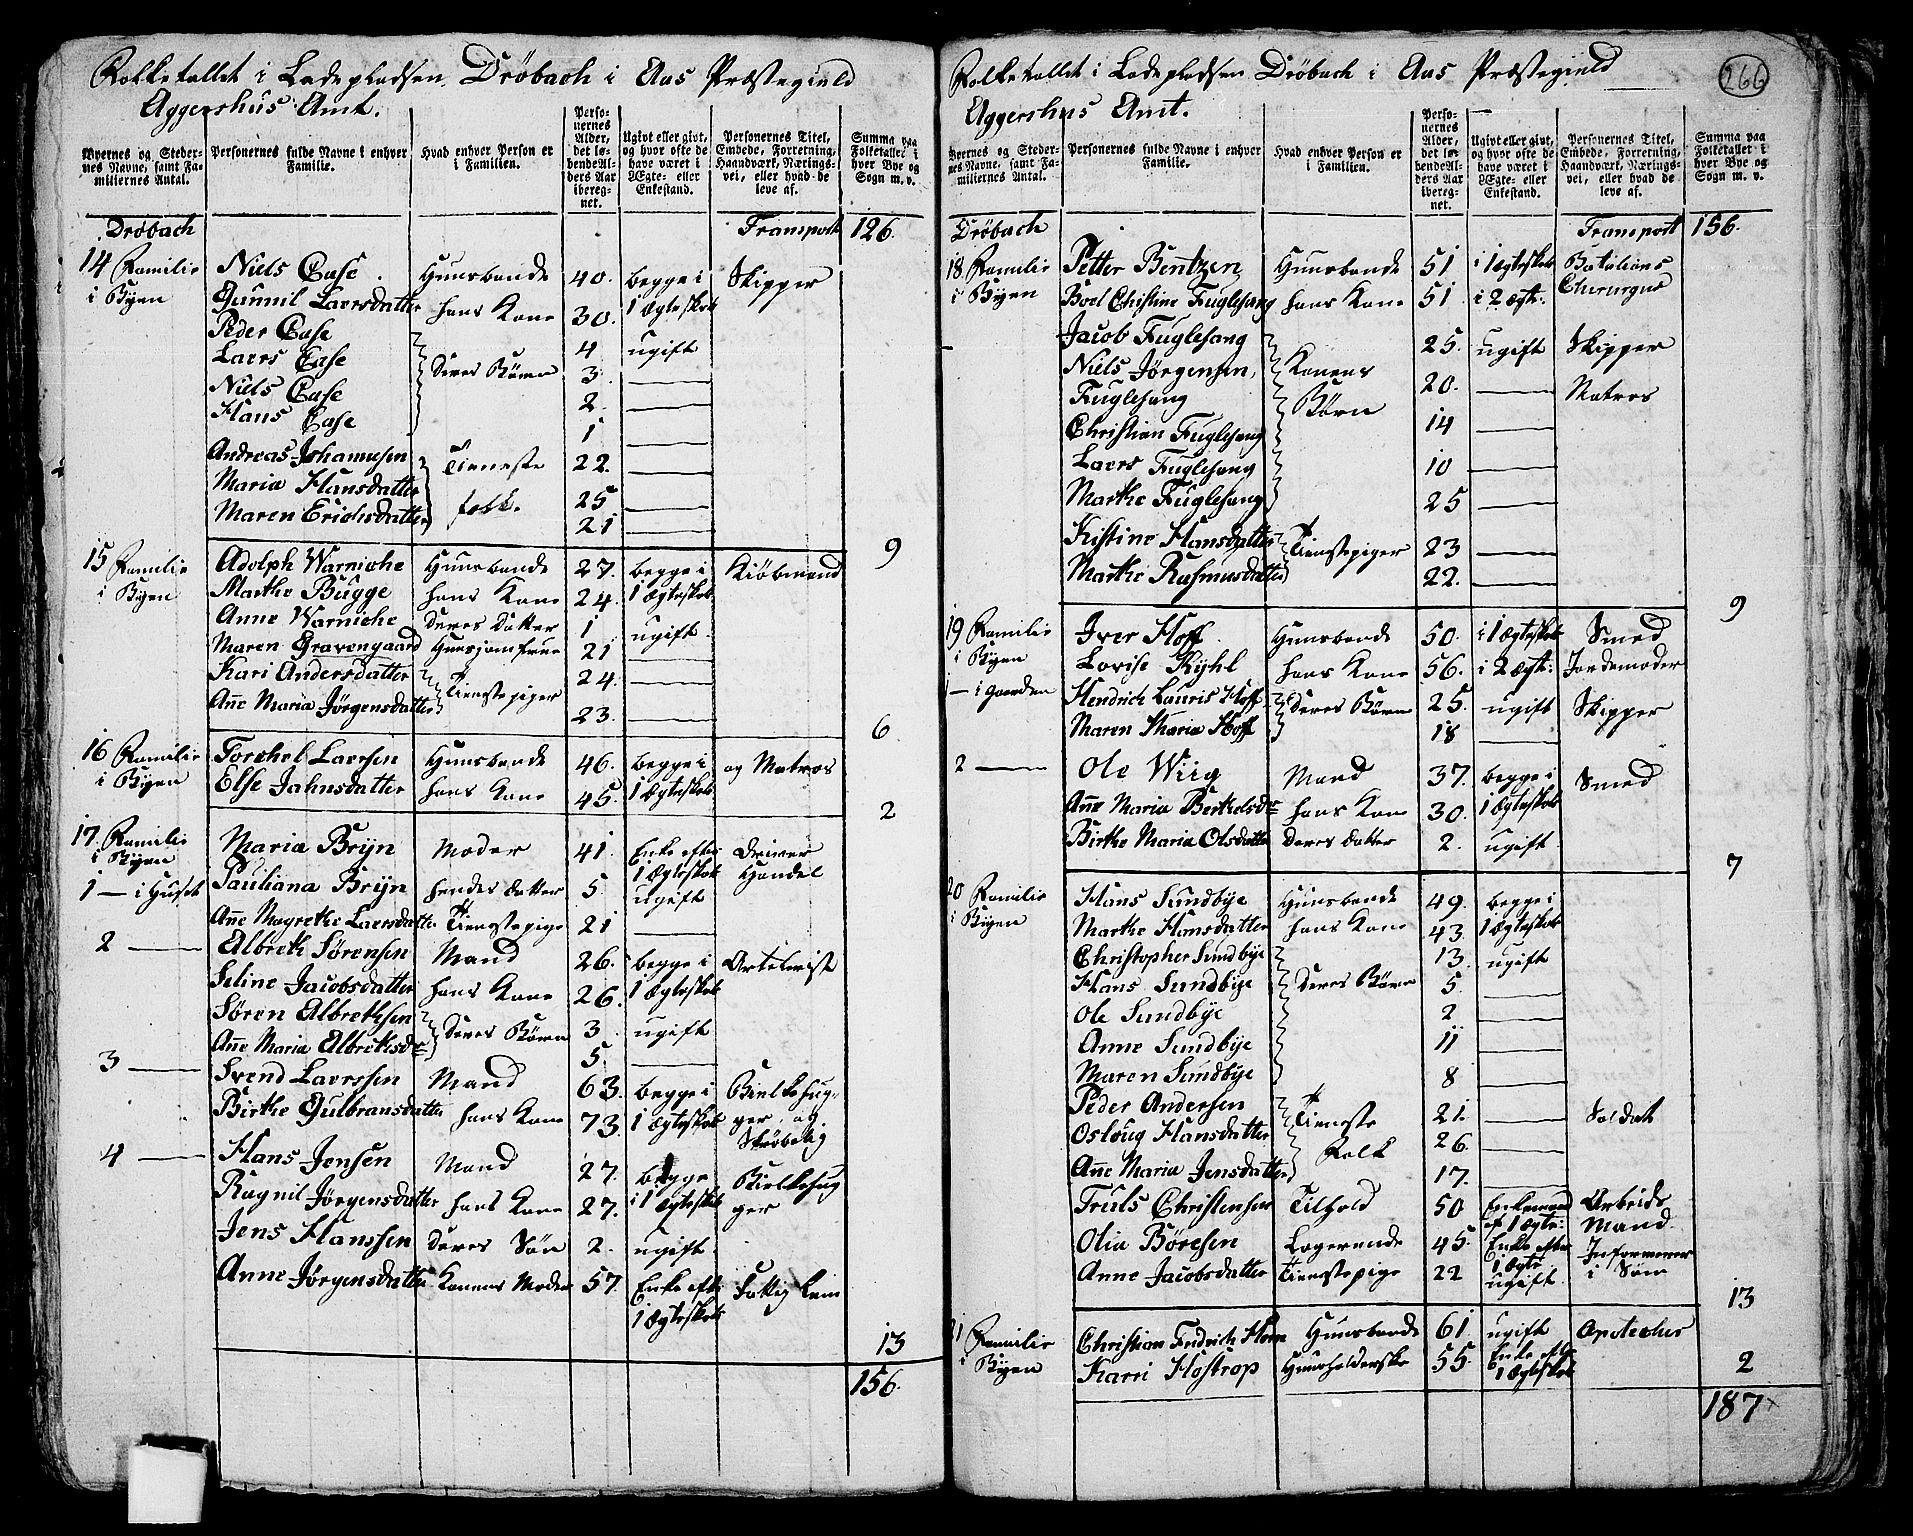 Folketallet i Ladepladsen Drøbach i Aas Præstegield
Aggershus Amt.
Byernes og Stedernes Navne, samt Familiernes Antal.
Personernes fulde Navne i enhver Familie.
Hvad enhver Person er i Familien.
Personernes Alder, det løbende Alders Aar iberegnet.
Ugivt eller givt, og hvor ofte de have været i Ægte- eller Enkestand.
Personernes Titel, Embede, Forretning, Haandværk, Næringsvei, eller hvad de leve af.
Summa paa Folketallet i hver Bye og Sogn m. v.
Drøbach Transport 126.
14 Familie i Byen Niels Case Huusbonde 40. begge i 1 Ægteskab Skipper
Gunnil Laersdatter hans Kone 30.
Peder Case 4 ugift
Laers Case deres Børn 3.
Niels Case 2.
Hans Case 1
Andreas Johannesen Tieneste 22.
Maria Hansdatter folk. 25
Maren Erichsdatter 21
9
15 Familie i Byen Adolph Warniche Huusbonde 27. begge i Kiøbmand
Marthe Bugge hans Kone 24. 1 Ægteskab
Anne Warniche deres Datter 1 ugift
Maren Gravengaard Huusjomfrue 21
Kari Andersdatter Tienstepiger 24.
Añe Maria Jørgensdatter 23.
6
16 Familie i Byen Torchel Laersen Huusbonde 46. begge i og Matros
Else Jahnsdatter hans Kone 45. 1 Ægteskab
2
17 Familie i Byen Maria Bryn Moder 41. Enke efter 1 Ægteskab Driver Handel
1 — i Huset Pauliana Bryn hendes datter 5. ugift
Añe Magrethe Laersdatter Tienstepige 21
2 — Albreth Sørensen Mand 26. begge i Artelerist
Seline Jacobsdatter hans Kone 26. 1 Ægteskab
Søren Albrethsen deres Børn 3. ugift
Añe Maria Albrethsdr 5.
3 — Svend Laerssen Mand 63. begge i Bielkehug-
Birthe Gulbransdatter hans Kone 73. 1 Ægteskab ger, og Skrøbelig
4 — Hans Jensen Mand 27. begge Bielkehug
Ragnil Jørgensdatter hans Kone 27. i 1 Ægteskab ger
Jens Hanssen deres Søn 2. ugift
Anne Jørgensdatter Konens Moder 57. Enke efter 1 Ægteskab Fattig Lem
13
156.
266
Folketallet i Ladepladsen Drøbach i Aas Præstegield
Aggershus Amt.
Byernes og Stedernes Navne, samt Familiernes Antal.
Personernes fulde Navne i enhver Familie.
Hvad enhver Person er i Familien.
Personernes Alder, det løbende Alders Aar iberegnet.
Ugivt eller givt, og hvor ofte de have været i Ægte- eller Enkestand.
Personernes Titel, Embede, Forretning, Haandværk, Næringsvei, eller hvad de leve af.
Summa paa Folketallet i hver Bye og Sogn m. v.
Drøbach Transport 156.
18 Familie i Byen Petter Bentzen Huusbonde 51 i 1 Ægteskab Batalions
Boel Christine Fuglesang hans Kone 51. i 2 Ægt: Chirurgus
Jacob Fuglesang Konens 25. ugift Skipper
Niels Jørgensen Fuglesang Børn 20. Matros
Christian Fuglesang 14
Laers Fuglesang 10
Marthe Fuglesang 25
Kistine Hansdatter Tienstepiger 23
Marthe Rasmusdatter 22.
9
19 Familie i Byen Iver Hoff Huusbonde 50. i 1 Ægteskab Smed
Lovise Kyhl hans Kone 56. i 2 Ægt: Jordemoder
1 — i Gaarden Hendrich Lauris Hoff deres Børn 25. ugift Skipper
Maren Maria Hoff 18
2 — Ole Wiig Mand 37. begge i Smed
Añe Maria Berthelsdr hans Kone 30. 1 Ægteskab
Birthe Maria Olsdatter deres datter 2. ugift
7
20 Familie i Byen Hans Sundbye Huusbonde 49. begge i
Marthe Hansdatter hans Kone 43. 1 Ægteskab
Christopher Sundbye 13. ugift
Hans Sundbye deres Børn 5.
Ole Sundbye 2
Anne Sundbye 11
Maren Sundbye 8
Peder Andersen Tieneste 21. Soldat
Osloug Hansdatter Folk 26.
Añe Maria Jensdatter 17.
Truls Christensen Tilhold 50 Enkemand af 1 Ægte: Arbeids Mand
Olia Børesen Logerende 45. Enke efter 1 Ægte
Anne Jacobsdatter Tienstepige 22 ugift
13
21 Familie i Byen Christian Fridrich Horn Huusbonde 61 ugift Apotecher
Karri Hostrop Huusholderske 55. Enke efter 1 Ægteskab
2
187